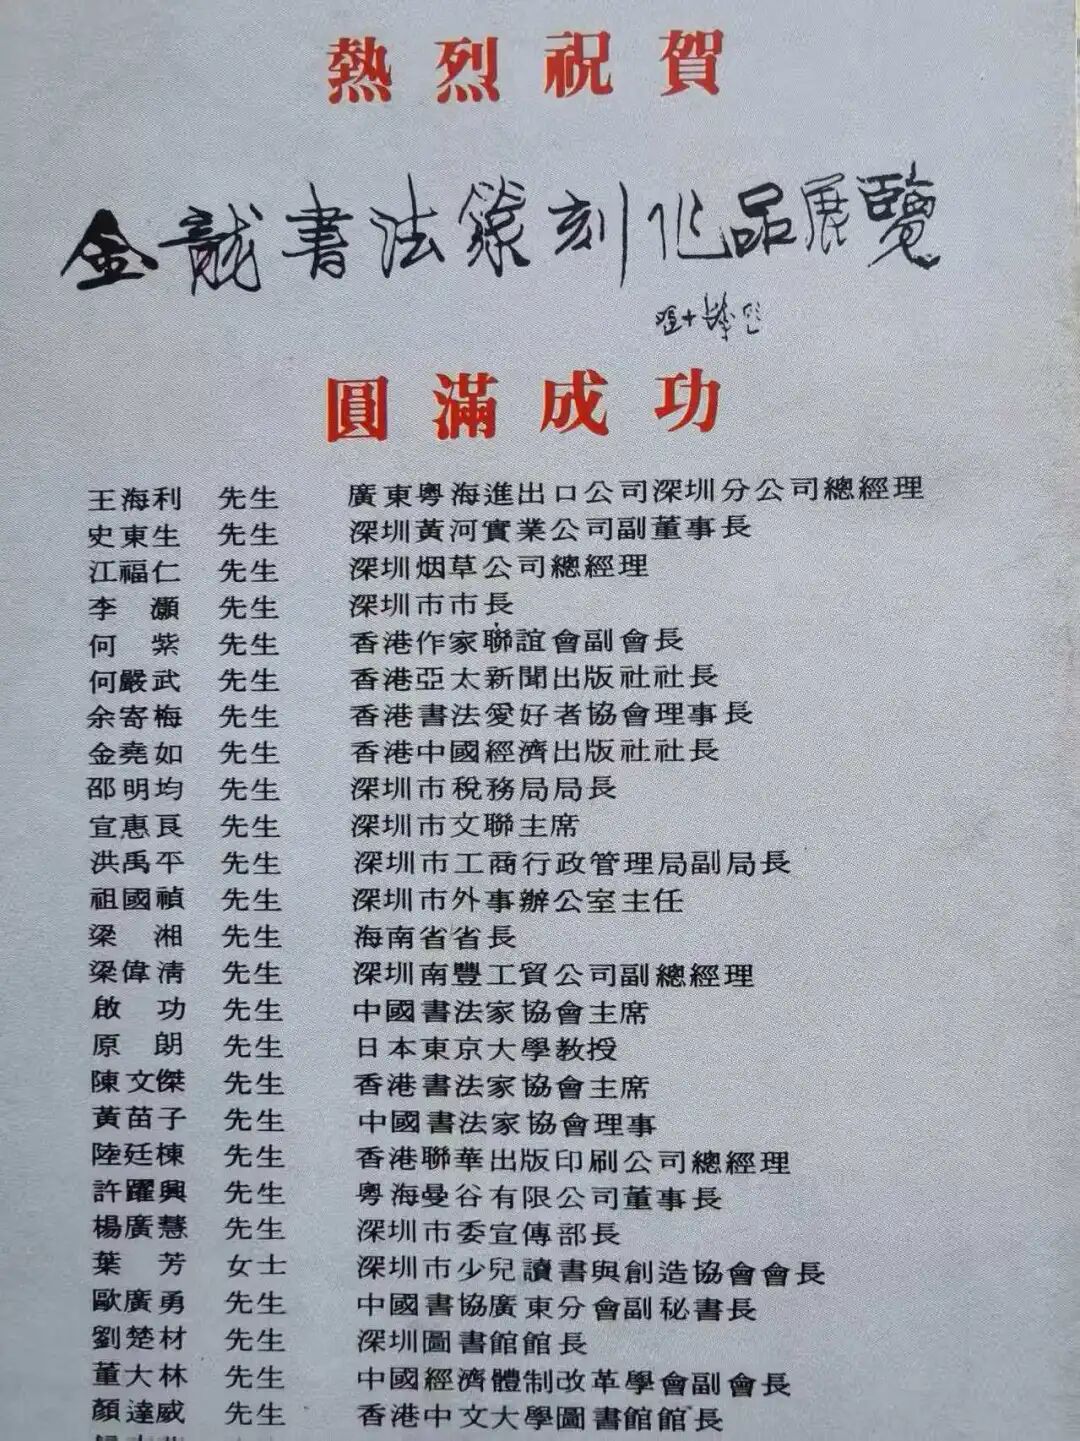 熱烈祝賀
金龍書法篆刻作品展覽
圓滿成功
王海利 先生 廣東粵海進出口公司深圳分公司總經理
史東生 先生 深圳黃河實業公司副董事長
江福仁 先生 深圳烟草公司總經理
李灝 先生 深圳市市長
何紫 先生 香港作家聯誼會副會長
何嚴武 先生 香港亞太新聞出版社社長
余寄梅 先生 香港書法愛好者協會理事長
金堯如 先生 香港中國經濟出版社社長
邵明均 先生 深圳市稅務局局長
宣惠良 先生 深圳市文聯主席
洪禹平 先生 深圳市工商行政管理局副局長
祖國禎 先生 深圳市外事辦公室主任
梁湘 先生 海南省省長
梁偉清 先生 深圳南豐工貿公司副總經理
啟功 先生 中國書法家協會主席
原朗 先生 日本東京大學教授
陳文傑 先生 香港書法家協會主席
黃苗子 先生 中國書法家協會理事
陸廷棟 先生 香港聯華出版印刷公司總經理
許躍興 先生 粵海曼谷有限公司董事長
楊廣慧 先生 深圳市委宣傳部長
葉芳 女士 深圳市少兒讀書與創造協會會長
歐廣勇 先生 中國書協廣東分會副秘書長
劉楚材 先生 深圳圖書館館長
董大林 先生 中國經濟體制改革學會副會長
顏達威 先生 香港中文大學圖書館館長